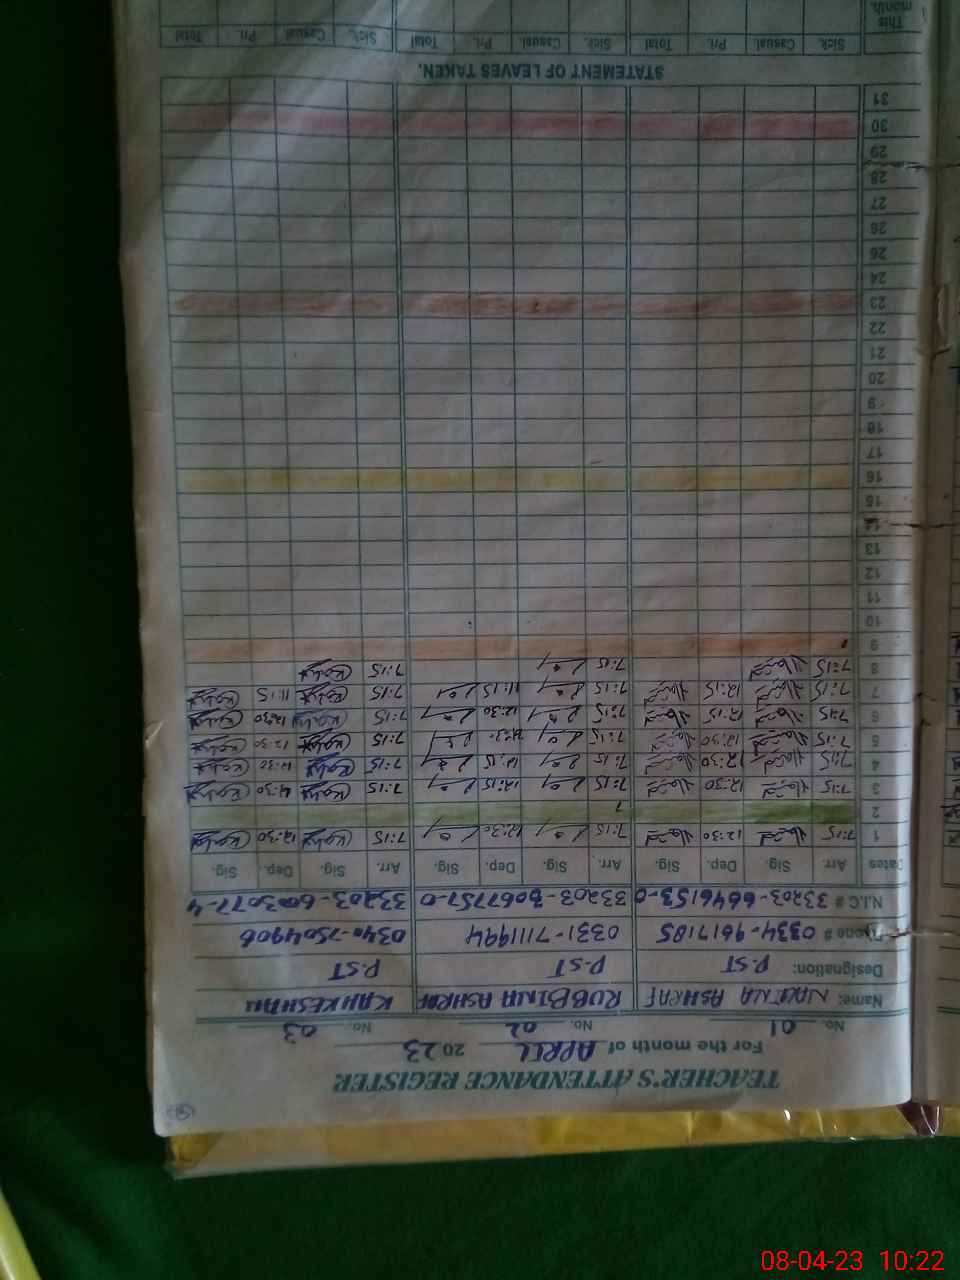 TEACHER'S ATTENDANCE REGISTER
For the month of APRIL 2023
No. 01 No. 02 No. 03
Name: NAZIMA ASHRAF RUBBINA ASHRAF KAHKESHAN
Designation: P.ST P.ST P.ST
Phone # 0334-9617185 0331-7111994 0340-7504906
N.I.C # 33203-6646153-0 33203-3067757-0 33203-6003077-4
Dates Arr. Sig. Dep. Sig. Arr. Sig. Dep. Sig. Arr. Sig. Dep. Sig.
1 7:15 12:30 7:15 12:30 7:15 12:30
2
3 7:15 12:30 7:15 12:15 7:15 12:30
4 7:15 12:30 7:15 12:15 7:15 12:30
5 7:15 12:30 7:15 12:30 7:15 12:30
6 7:15 12:15 7:15 12:30 7:15 12:30
7 7:15 12:15 7:15 11:15 7:15 11:15
8 7:15 7:15 7:15
9
10
11
12
13
14
15
16
17
18
19
20
21
22
23
24
25
26
27
28
29
30
31
STATEMENT OF LEAVES TAKEN.
Sick. Casual Pri. Total Sick. Casual Pri. Total Sick. Casual Pri. Total
This month.
08-04-23 10:22